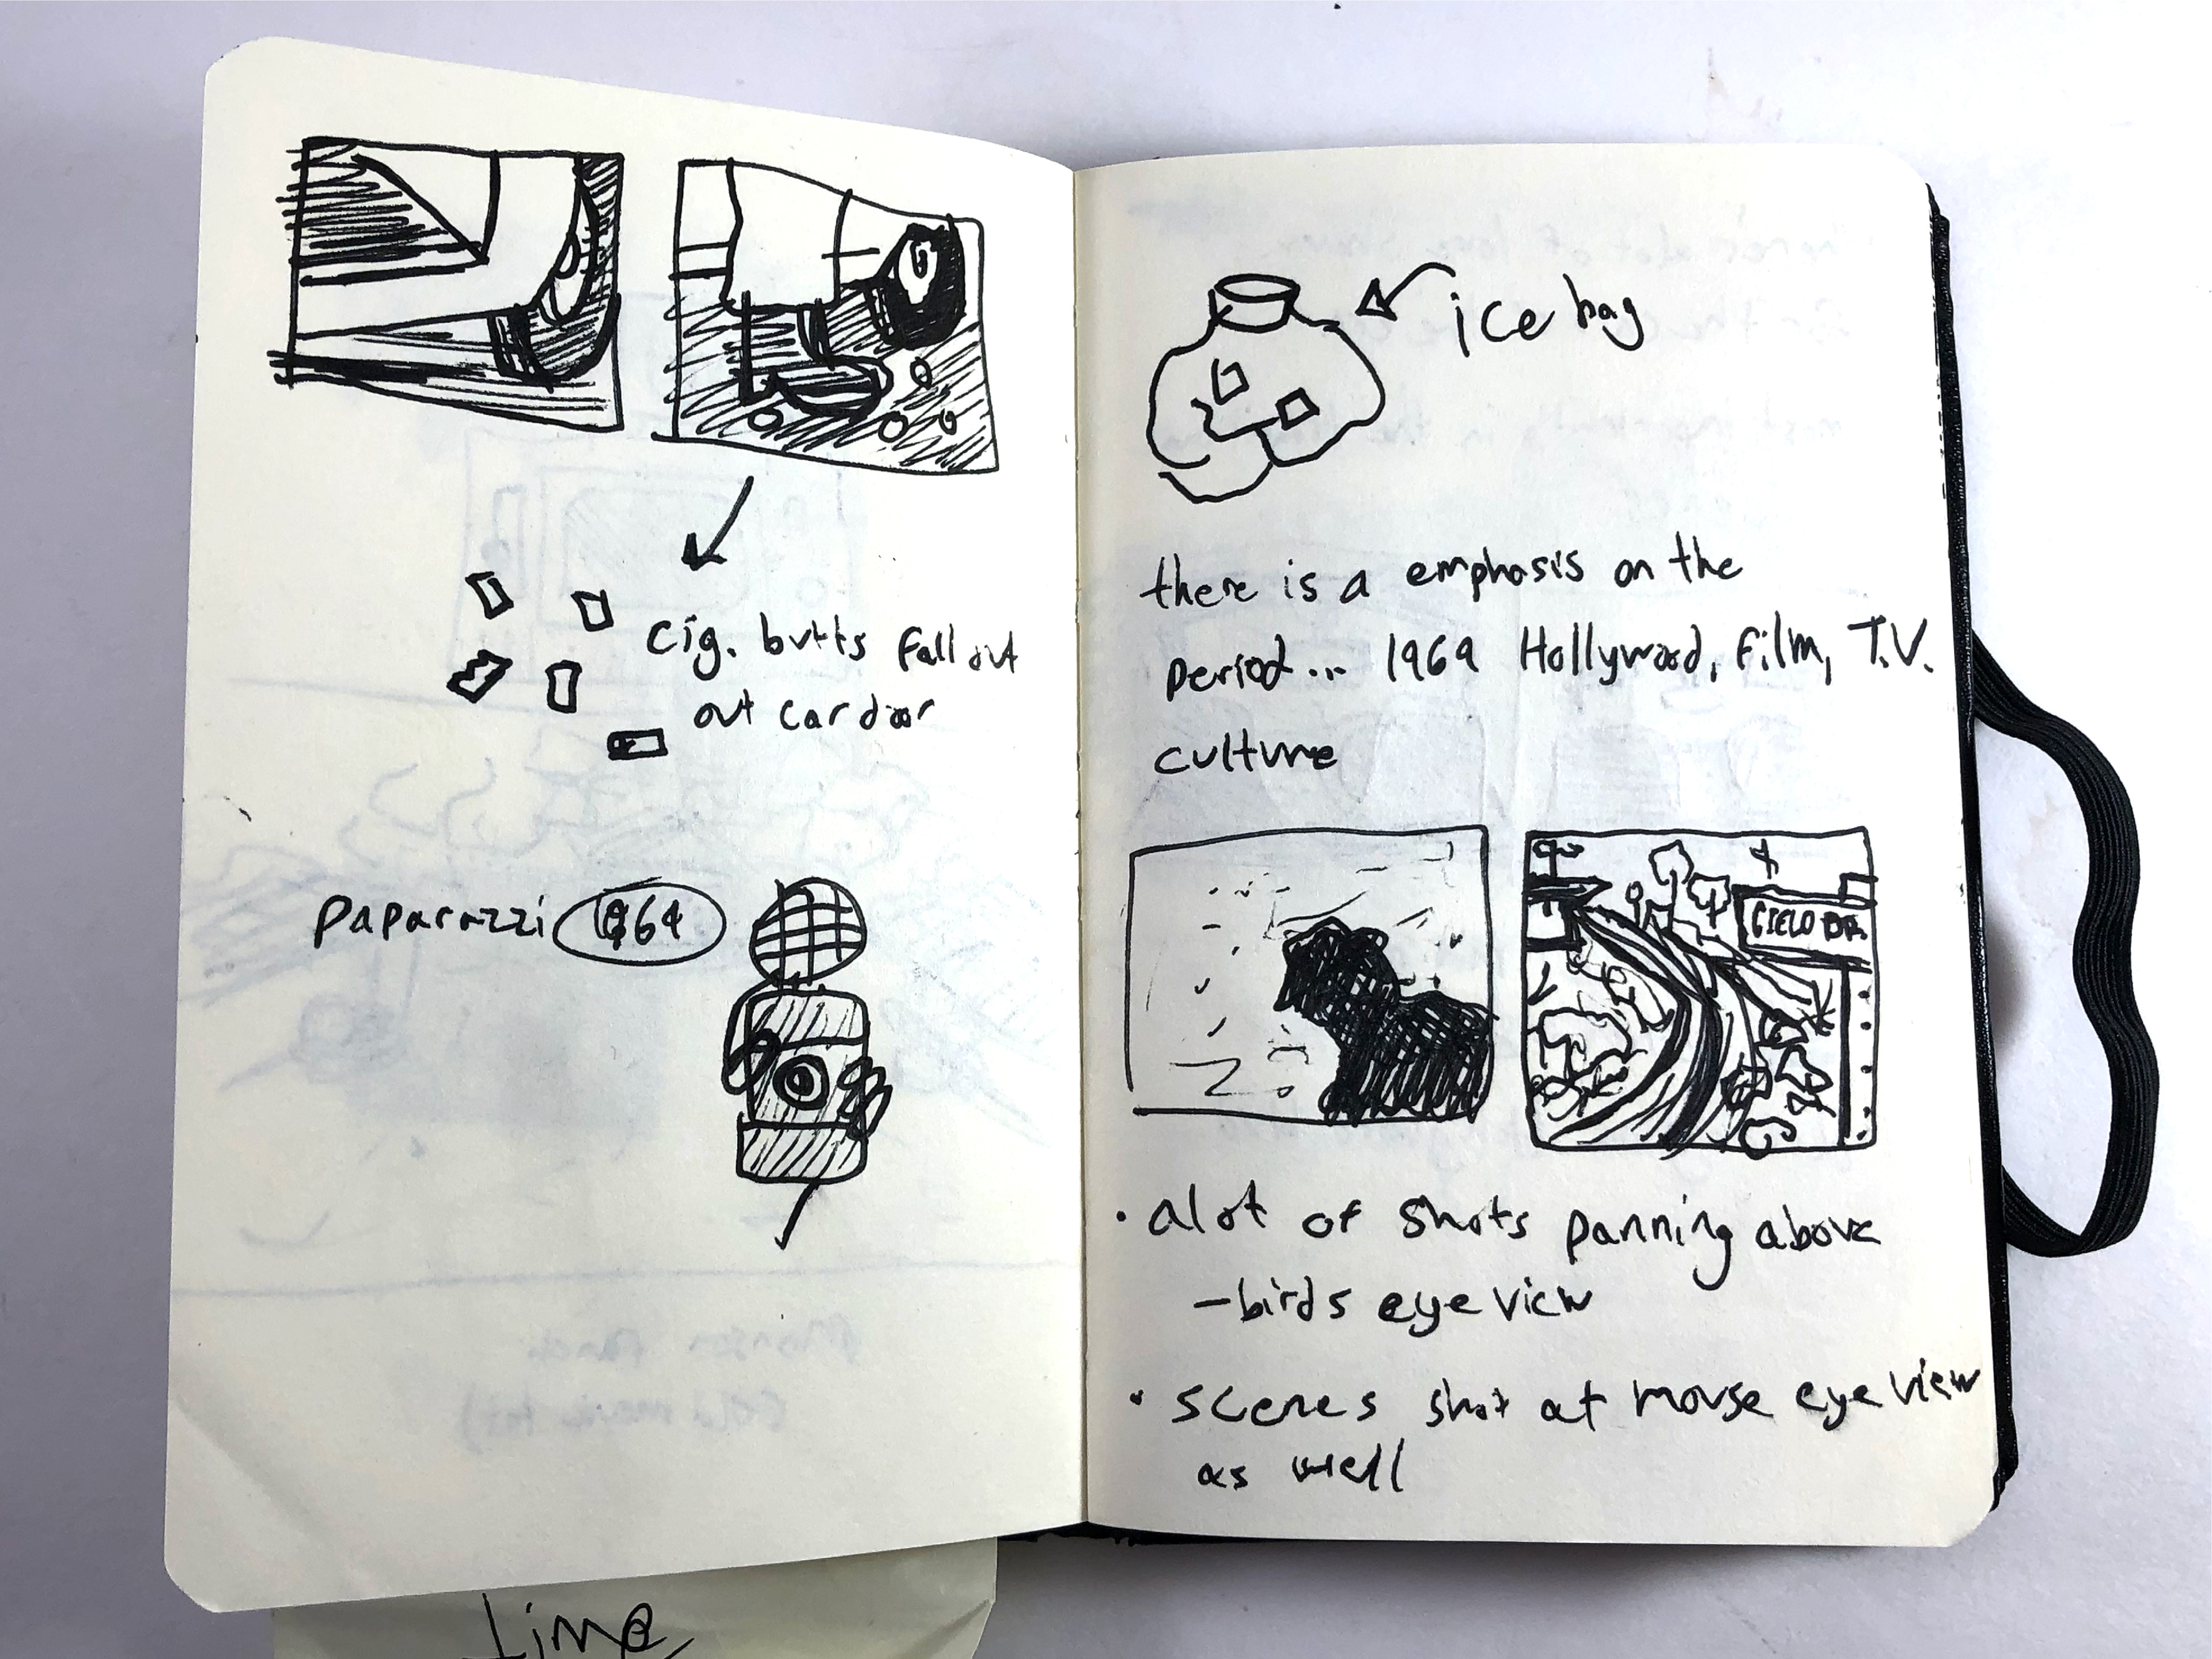 Cig. butts fall out
out car door
Paparazzi 1969
ice bag
there is a emphasis on the
period... 1969 Hollywood, Film, T.V.
culture
CIELO DR.
• alot of shots panning above
– birds eye view
• scenes shot at mouse eye view
as well
time